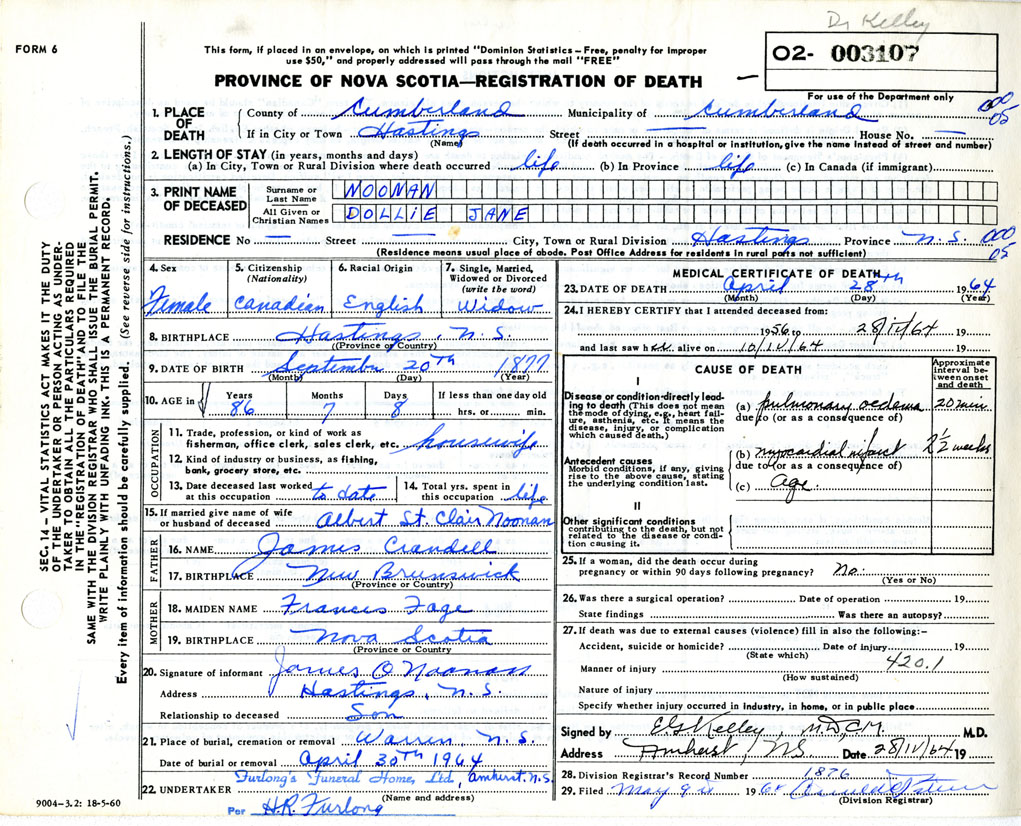 Dr Kelley
FORM 6
This form, if placed in an envelope, on which is printed "Dominion Statistics – Free, penalty for improper
use $50," and properly addressed will pass through the mail "FREE"
O2- 003107
PROVINCE OF NOVA SCOTIA—REGISTRATION OF DEATH
For use of the Department only
000
05
1. PLACE OF DEATH
County of Cumberland Municipality of Cumberland
If in City or Town Hastings Street — House No. —
(Name) (If death occurred in a hospital or institution, give the name instead of street and number)
2. LENGTH OF STAY (in years, months and days)
(a) In City, Town or Rural Division where death occurred life (b) In Province life (c) In Canada (if immigrant)
3. PRINT NAME OF DECEASED
Surname or Last Name NOONAN
All Given or Christian Names DOLLIE JANE
RESIDENCE No — Street — City, Town or Rural Division Hastings Province N.S.
000
05
(Residence means usual place of abode. Post Office Address for residents in rural parts not sufficient)
4. Sex
Female
5. Citizenship (Nationality)
Canadian
6. Racial Origin
English
7. Single, Married, Widowed or Divorced (write the word)
Widow
8. BIRTHPLACE Hastings, N.S.
(Province or Country)
9. DATE OF BIRTH September 20TH 1877
(Month) (Day) (Year)
10. AGE in Years 86 Months 7 Days 8 If less than one day old hrs. or min.
OCCUPATION
11. Trade, profession, or kind of work as
fisherman, office clerk, sales clerk, etc. housewife
12. Kind of industry or business, as fishing,
bank, grocery store, etc.
13. Date deceased last worked at this occupation to date
14. Total yrs. spent in this occupation life
15. If married give name of wife
or husband of deceased Albert St. Clair Noonan
FATHER
16. NAME James Crandell
17. BIRTHPLACE New Brunswick
(Province or Country)
MOTHER
18. MAIDEN NAME Frances
19. BIRTHPLACE Nova Scotia
(Province or Country)
20. Signature of informant James O Noonan
Address Hastings, N.S.
Relationship to deceased Son
21. Place of burial, cremation or removal Warren, N.S.
Date of burial or removal April 30TH 1964
22. UNDERTAKER Furlong's Funeral Home, Ltd. Amherst, N.S.
(Name and address)
Per H.R. Furlong
9004–3.2: 18-5-60
SEC. 14 – VITAL STATISTICS ACT MAKES IT THE DUTY
OF THE UNDERTAKER OR PERSON ACTING AS UNDER-
TAKER TO OBTAIN ALL THE PARTICULARS REQUIRED
IN THE "REGISTRATION OF DEATH" AND TO FILE THE
SAME WITH THE DIVISION REGISTRAR WHO SHALL ISSUE THE BURIAL PERMIT.
WRITE PLAINLY WITH UNFADING INK. THIS IS A PERMANENT RECORD.
Every item of information should be carefully supplied. (See reverse side for instructions.)
MEDICAL CERTIFICATE OF DEATH
23. DATE OF DEATH April 28TH 1964
(Month) (Day) (Year)
24. I HEREBY CERTIFY that I attended deceased from:
1956 to 28/IV/64 19
and last saw her alive on 10/IV/64 19
CAUSE OF DEATH
Approximate interval between onset and death
I
Disease or condition directly leading to death (This does not mean the mode of dying, e.g., heart failure, asthenia, etc. It means the disease, injury, or complication which caused death.)
(a) pulmonary oedema 20 min
due to (or as a consequence of)
Antecedent causes
Morbid conditions, if any, giving rise to the above cause, stating the underlying condition last.
(b) myocardial infarct 2½ weeks
due to (or as a consequence of)
(c) age.
II
Other significant conditions
contributing to the death, but not related to the disease or condition causing it.
25. If a woman, did the death occur during
pregnancy or within 90 days following pregnancy? No.
(Yes or No)
26. Was there a surgical operation? Date of operation 19
State findings Was there an autopsy?
27. If death was due to external causes (violence) fill in also the following:–
Accident, suicide or homicide? Date of injury 19
(State which)
Manner of injury 420.1
(How sustained)
Nature of injury
Specify whether injury occurred in industry, in home, or in public place
Signed by E.G. Kelley, M.D., C.M. M.D.
Address Amherst, N.S. Date 28/IV/64 19
28. Division Registrar's Record Number 1876
29. Filed May 9 1964
(Division Registrar)